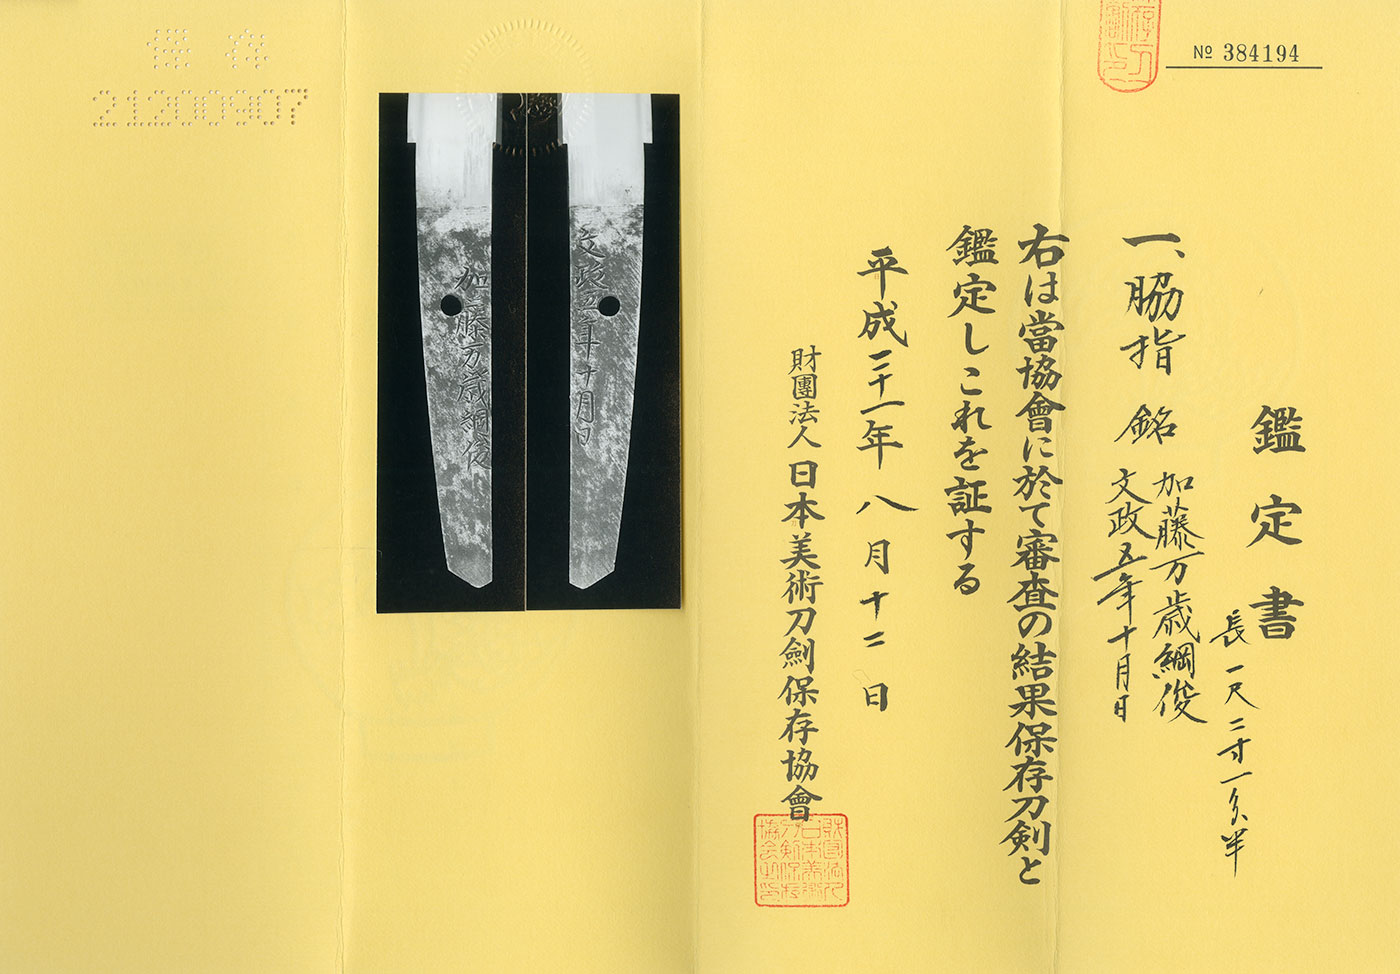 № 384194
鑑定書
長一尺二寸一分半
一、脇指 銘 加藤万歳綱俊
文政五年十月日
右は當協會に於て審査の結果保存刀剣と
鑑定しこれを証する
平成二十一年八月十二日
財團法人日本美術刀劍保存協會
文政五年十月日
加藤万歳綱俊
保存
21200907